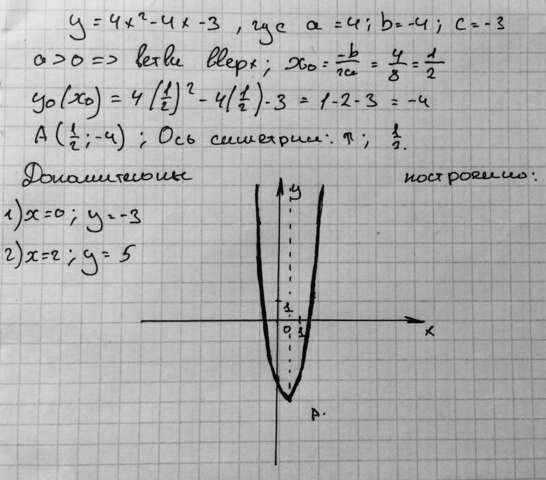 y = 4x² - 4x - 3 , где a = 4; b = -4; c = -3
a > 0 => ветви вверх; x₀ = -b/2a = 4/8 = 1/2
y₀(x₀) = 4(1/2)² - 4(1/2) - 3 = 1 - 2 - 3 = -4
A(1/2; -4) ; Ось симетрии: ↑; 1/2.
построению:
1) x=0; y=-3
2) x=2; y=5
y
1
0 1
x
A.